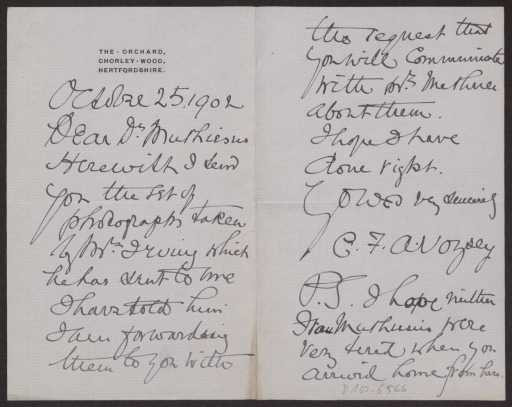 THE · ORCHARD,
CHORLEY · WOOD,
HERTFORDSHIRE.
October 25. 1902
Dear Dr. Muthesius
Herewith I send
you the set of
photographs taken
by Mr. Irving which
he has sent to me
I have told him
I am forwarding
them to you with
the request that
you will communicate
with Mr.
about them.
I hope I have
done right.
Yours very sincerely
C. F. A. Voysey
P.S. I hope neither
Frau Muthesius were
very tired when you
arrived home from here.